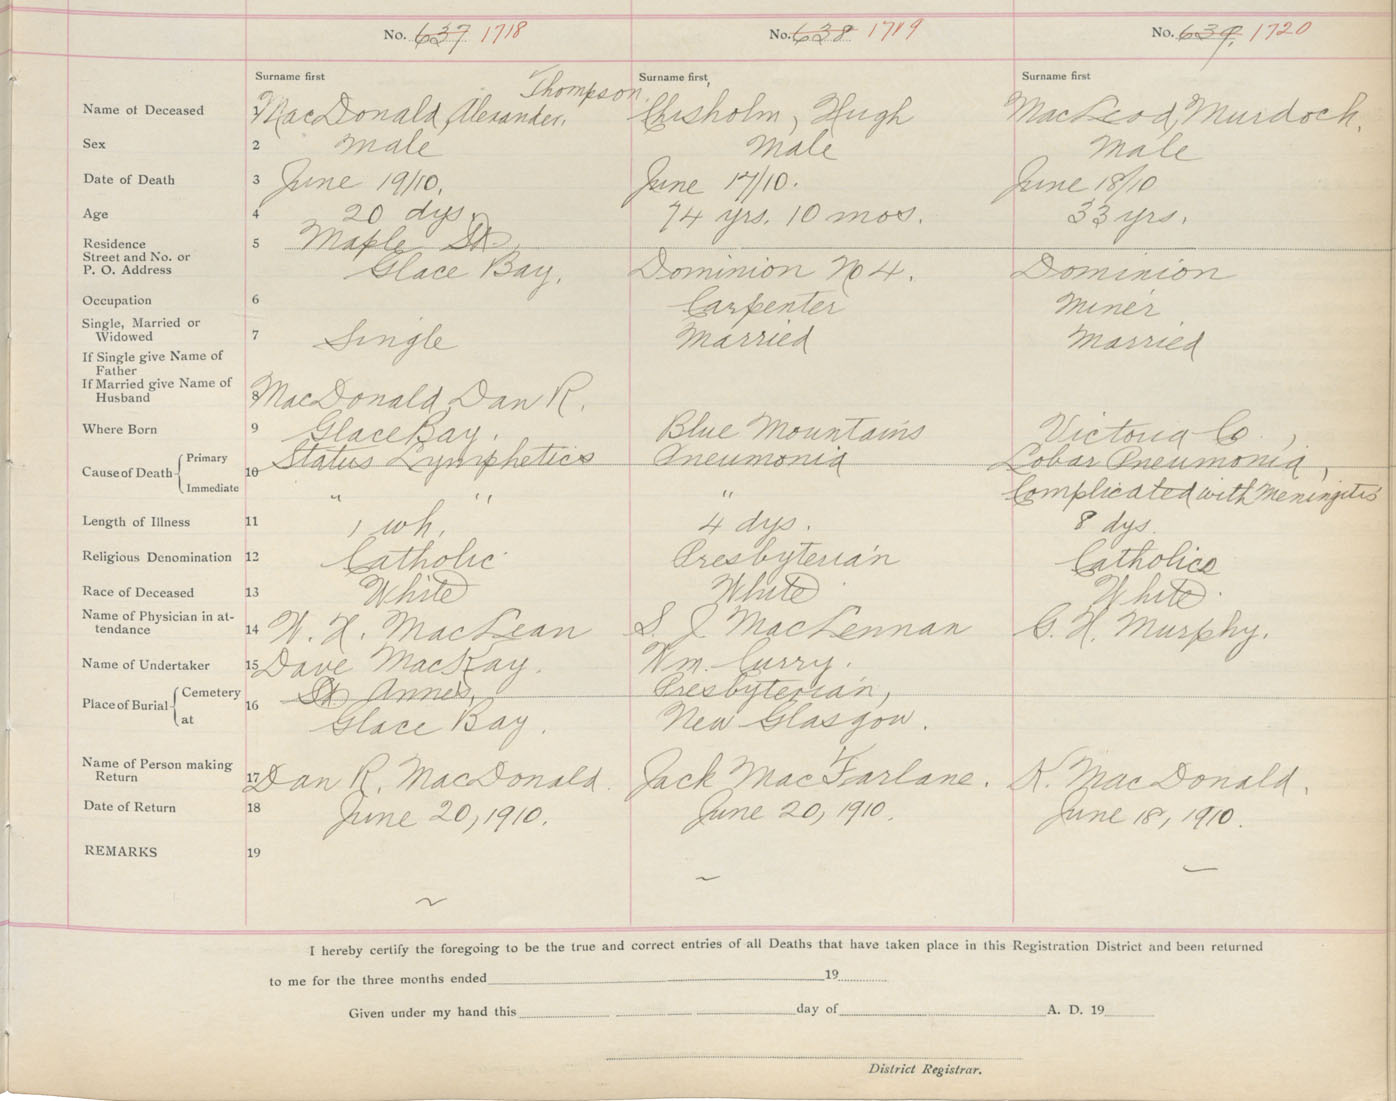 No. 637 1718 No. 638 1719 No. 639. 1720
Surname first Surname first Surname first
Thompson
Name of Deceased 1 MacDonald, Alexander, Chisholm, Hugh MacLeod, Murdoch.
Sex 2 Male Male Male
Date of Death 3 June 19/10. June 17/10. June 18/10
Age 4 20 dys. 74 yrs. 10 mos. 33 yrs.
Residence 5 Maple St.,
Street and No. or
P. O. Address Glace Bay. Dominion No 4. Dominion
Occupation 6 Carpenter Miner
Single, Married or
Widowed 7 Single Married Married
If Single give Name of
Father
If Married give Name of
Husband 8 MacDonald, Dan R.
Where Born 9 Glace Bay. Blue Mountains Victoria Co.,
Cause of Death Primary 10 Status Lymphetics Pneumonia Lobar Pneumonia,
Immediate " " " Complicated with Meningitis
Length of Illness 11 1 wk. 4 dys. 8 dys.
Religious Denomination 12 Catholic Presbyterian Catholics
Race of Deceased 13 White White White.
Name of Physician in at-
tendance 14 W. H. MacLean S. J. MacLennan G. H. Murphy.
Name of Undertaker 15 Dave MacKay. Wm. Curry.
Place of Burial Cemetery 16 St Anne's, Presbyterian,
at Glace Bay. New Glasgow.
Name of Person making
Return 17 Dan R. MacDonald. Jack MacFarlane. K. MacDonald.
Date of Return 18 June 20, 1910. June 20, 1910. June 18, 1910.
REMARKS 19
I hereby certify the foregoing to be the true and correct entries of all Deaths that have taken place in this Registration District and been returned
to me for the three months ended 19
Given under my hand this day of A. D. 19
District Registrar.